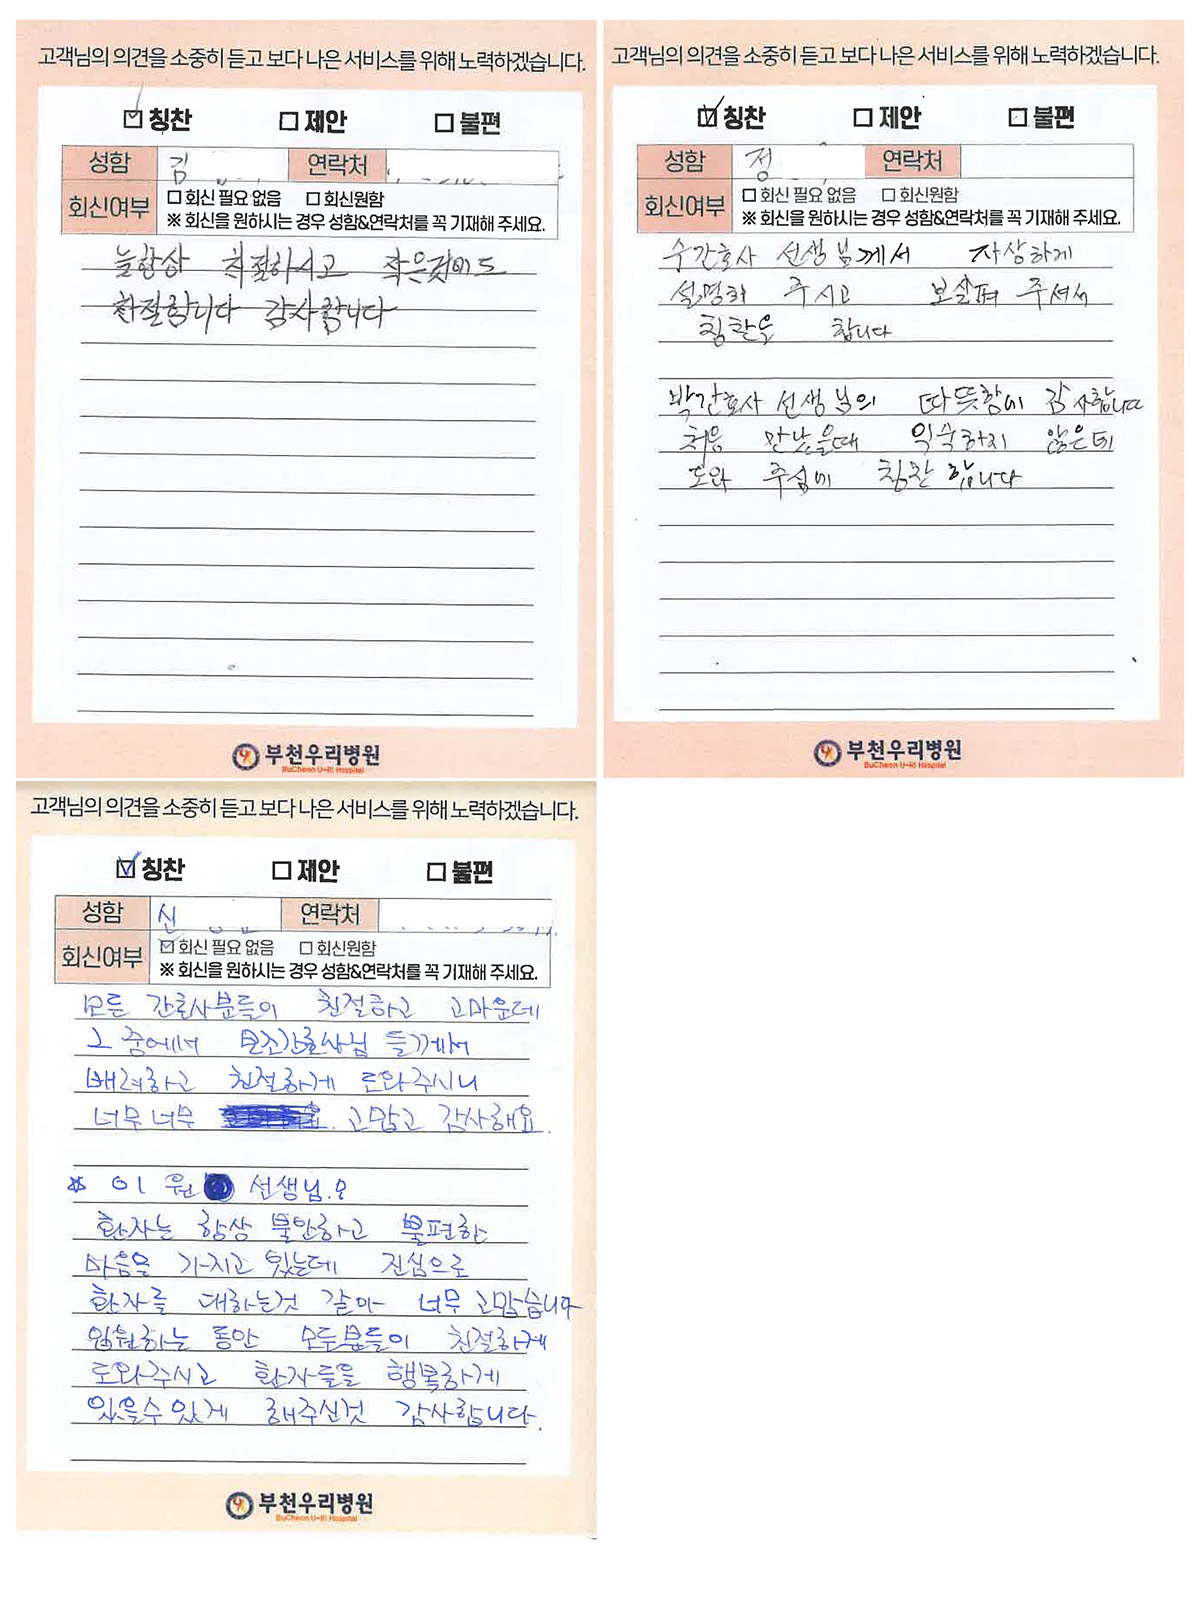 고객님의 의견을 소중히 듣고 보다 나은 서비스를 위해 노력하겠습니다.
칭찬 제안 불편
성함 김 연락처
회신여부 회신 필요 없음 회신원함
※ 회신을 원하시는 경우 성함&연락처를 꼭 기재해 주세요.
늘항상 친절하시고 작은것에도
친절합니다 감사합니다
부천우리병원
BuCheon U-RI Hospital
고객님의 의견을 소중히 듣고 보다 나은 서비스를 위해 노력하겠습니다.
칭찬 제안 불편
성함 정 연락처
회신여부 회신 필요 없음 회신원함
※ 회신을 원하시는 경우 성함&연락처를 꼭 기재해 주세요.
수간호사 선생님께서 자상하게
설명해 주시고 보살펴 주셔서
칭찬을 합니다
박간호사 선생님의 따뜻함에 감사합니다
처음 만났을때 익숙하지 않은데
도와 주심에 칭찬 합니다
부천우리병원
BuCheon U-RI Hospital
고객님의 의견을 소중히 듣고 보다 나은 서비스를 위해 노력하겠습니다.
칭찬 제안 불편
성함 신 연락처
회신여부 회신 필요 없음 회신원함
※ 회신을 원하시는 경우 성함&연락처를 꼭 기재해 주세요.
모든 간호사분들이 친절하고 고마운데
그 중에서 보조간호사님 들께서
배려하고 친절하게 도와주시니
너무너무 고맙고 감사해요.
※ 이 원 선생님.
환자는 항상 불안하고 불편한
마음을 가지고 있는데 진심으로
환자를 대하는것 같아 너무 고맙습니다
입원하는 동안 모두분들이 친절하게
도와주시고 환자들을 행복하게
있을수 있게 해주신것 감사합니다.
부천우리병원
BuCheon U-RI Hospital